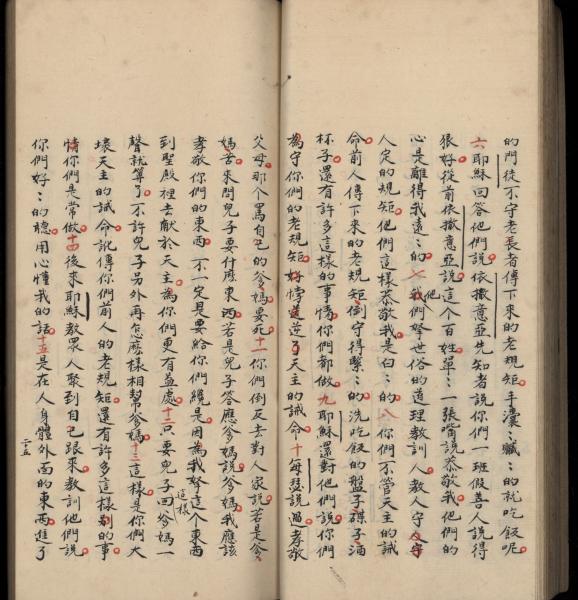 的門徒不守老長者傳下來的老規矩手濃〻臟〻的就吃飯呢
六耶穌回答他們說依撒意亞先知者說你們一班假善人說得
狠好從前依撒意亞說這个百姓單〻一張嘴說恭敬我他們的
心是離得我遠〻的七他我們拏世俗的道理教訓人教人守
人定的規矩他們這樣恭敬我是白〻的八你們不管天主的誡
命前人傳下來的老規矩倒守得緊〻的洗吃飯的盤子碟子酒
杯子還有許多這樣的事情你們都做九耶穌還對他們說你們
為守你們的老規矩好悖違逆了天主的誡命十每瑟說過孝敬
父母那个罵自己的爹媽要死十一你們倒反去對人家說若是爹
媽苦來問兒子要什麽東西若是兒子答應爹媽說爹媽我應該
孝敬你們的東西不一定是要給你們纔是因為我拏這个東西
到聖殿裡去獻於天主為你們更有益處十二只要兒子回爹媽一
這樣
聲就算了不許兒子另外再怎麽樣相幫爹媽十三這樣是你們大
壞天主的誡命訛傳你們前人的老規矩還有許多這樣別的事
情你們是常做十四後來耶穌教眾人聚到自己跟來教訓他們說
你們好〻的聽用心懂我的話十五是在人身體外面的東西進了
二五